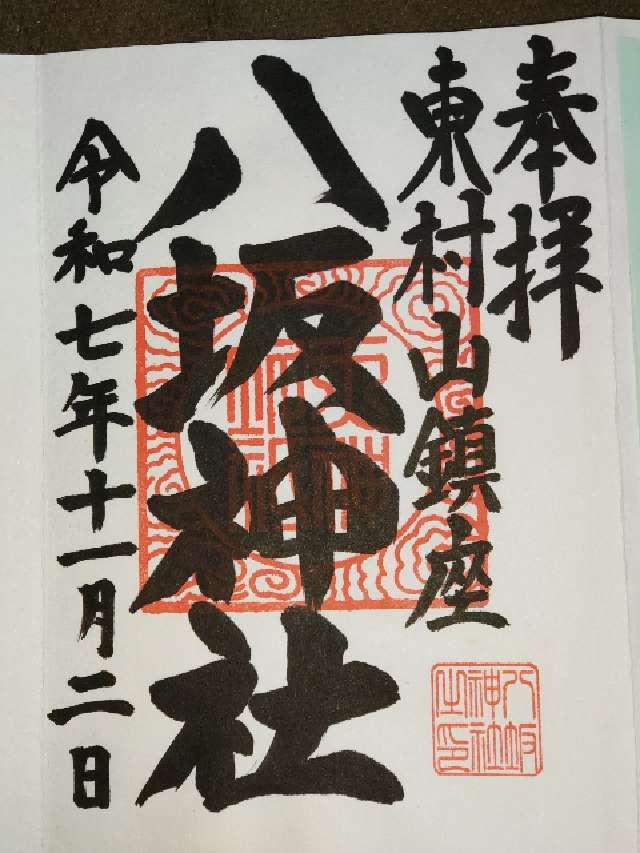 奉拝
東村山鎮座
八坂神社
令和七年十一月二日
八坂
神社
之印